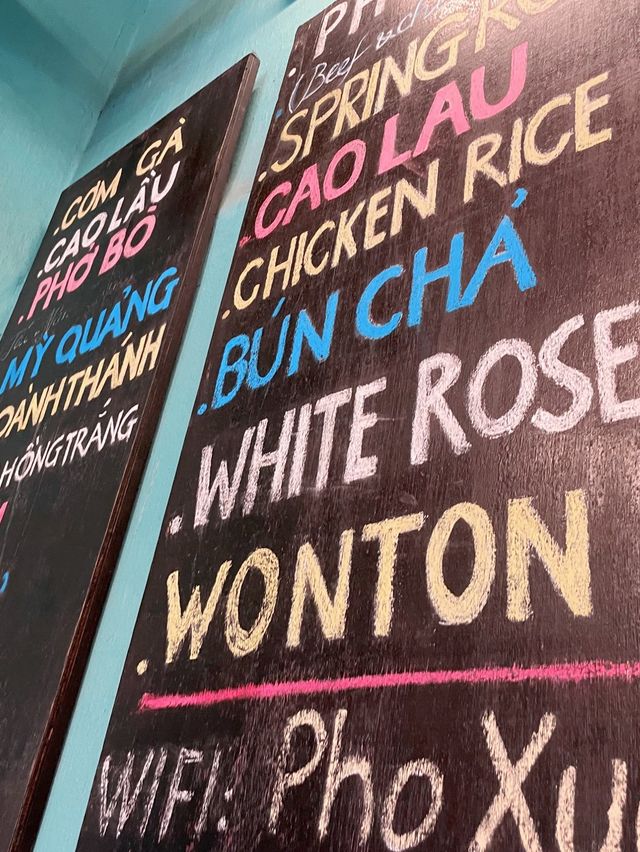 .CƠM GÀ
.CAO LẦU
.PHỞ BÒ
MỲ QUẢNG
HOÀNH THÁNH
HỒNG TRẮNG
. PH
(Beef &
.SPRING RO
.CAO LAU
.CHICKEN RICE
.BÚN CHẢ
.WHITE ROSE
.WONTON
WIFI: Pho Xu